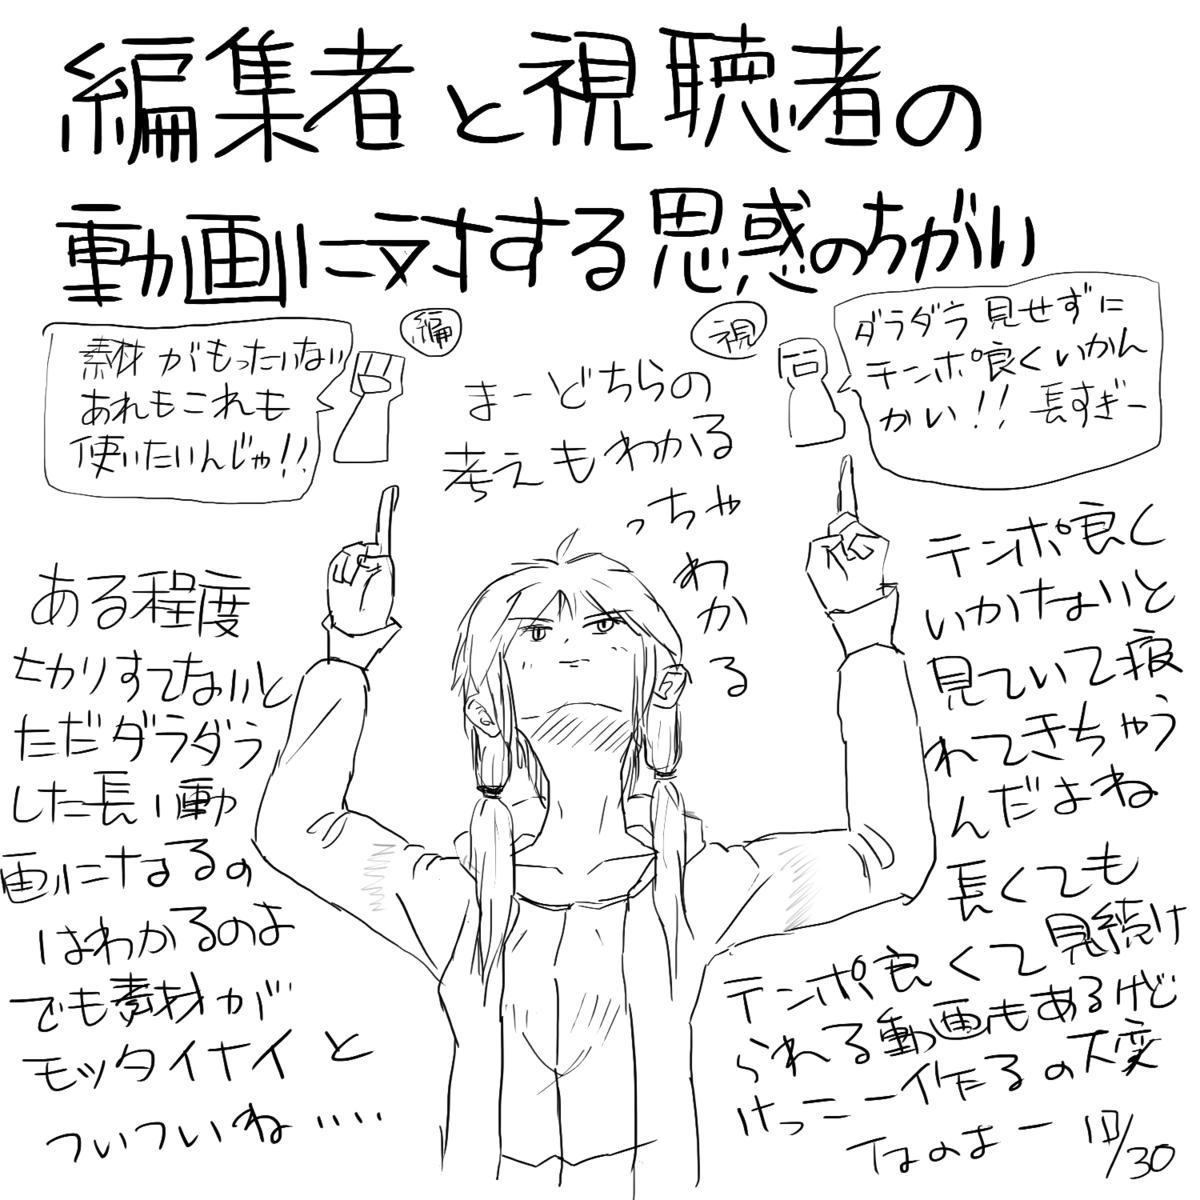 編集者と視聴者の
動画に対する思惑のちがい
編
素材がもったいない
あれもこれも
使いたいんじゃ!!
視
ダラダラ見せずに
テンポ良くいかん
かい!! 長すぎー
まーどちらの
考えもわかる
っちゃ
わかる
ある程度
切りすてないと
ただダラダラ
した長い動
画になるの
はわかるのよ
でも素材が
モッタイナイと
ついついね‥‥
テンポ良く
いかけないと
見ていて疲
れてきちゃう
んだよね
長くても
テンポ良くて見続け
られる動画もあるけど
けっこー作るの大変
なのよー
11/30